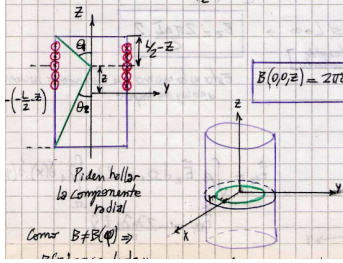 Z
θ₁
L/2-z
z
Y
-(-L/2-z)
θ₂
B(0,0,z) = 2π
Z
Y
X
r
Piden hallar
la componente
radial
Como B≠B(φ) ⇒